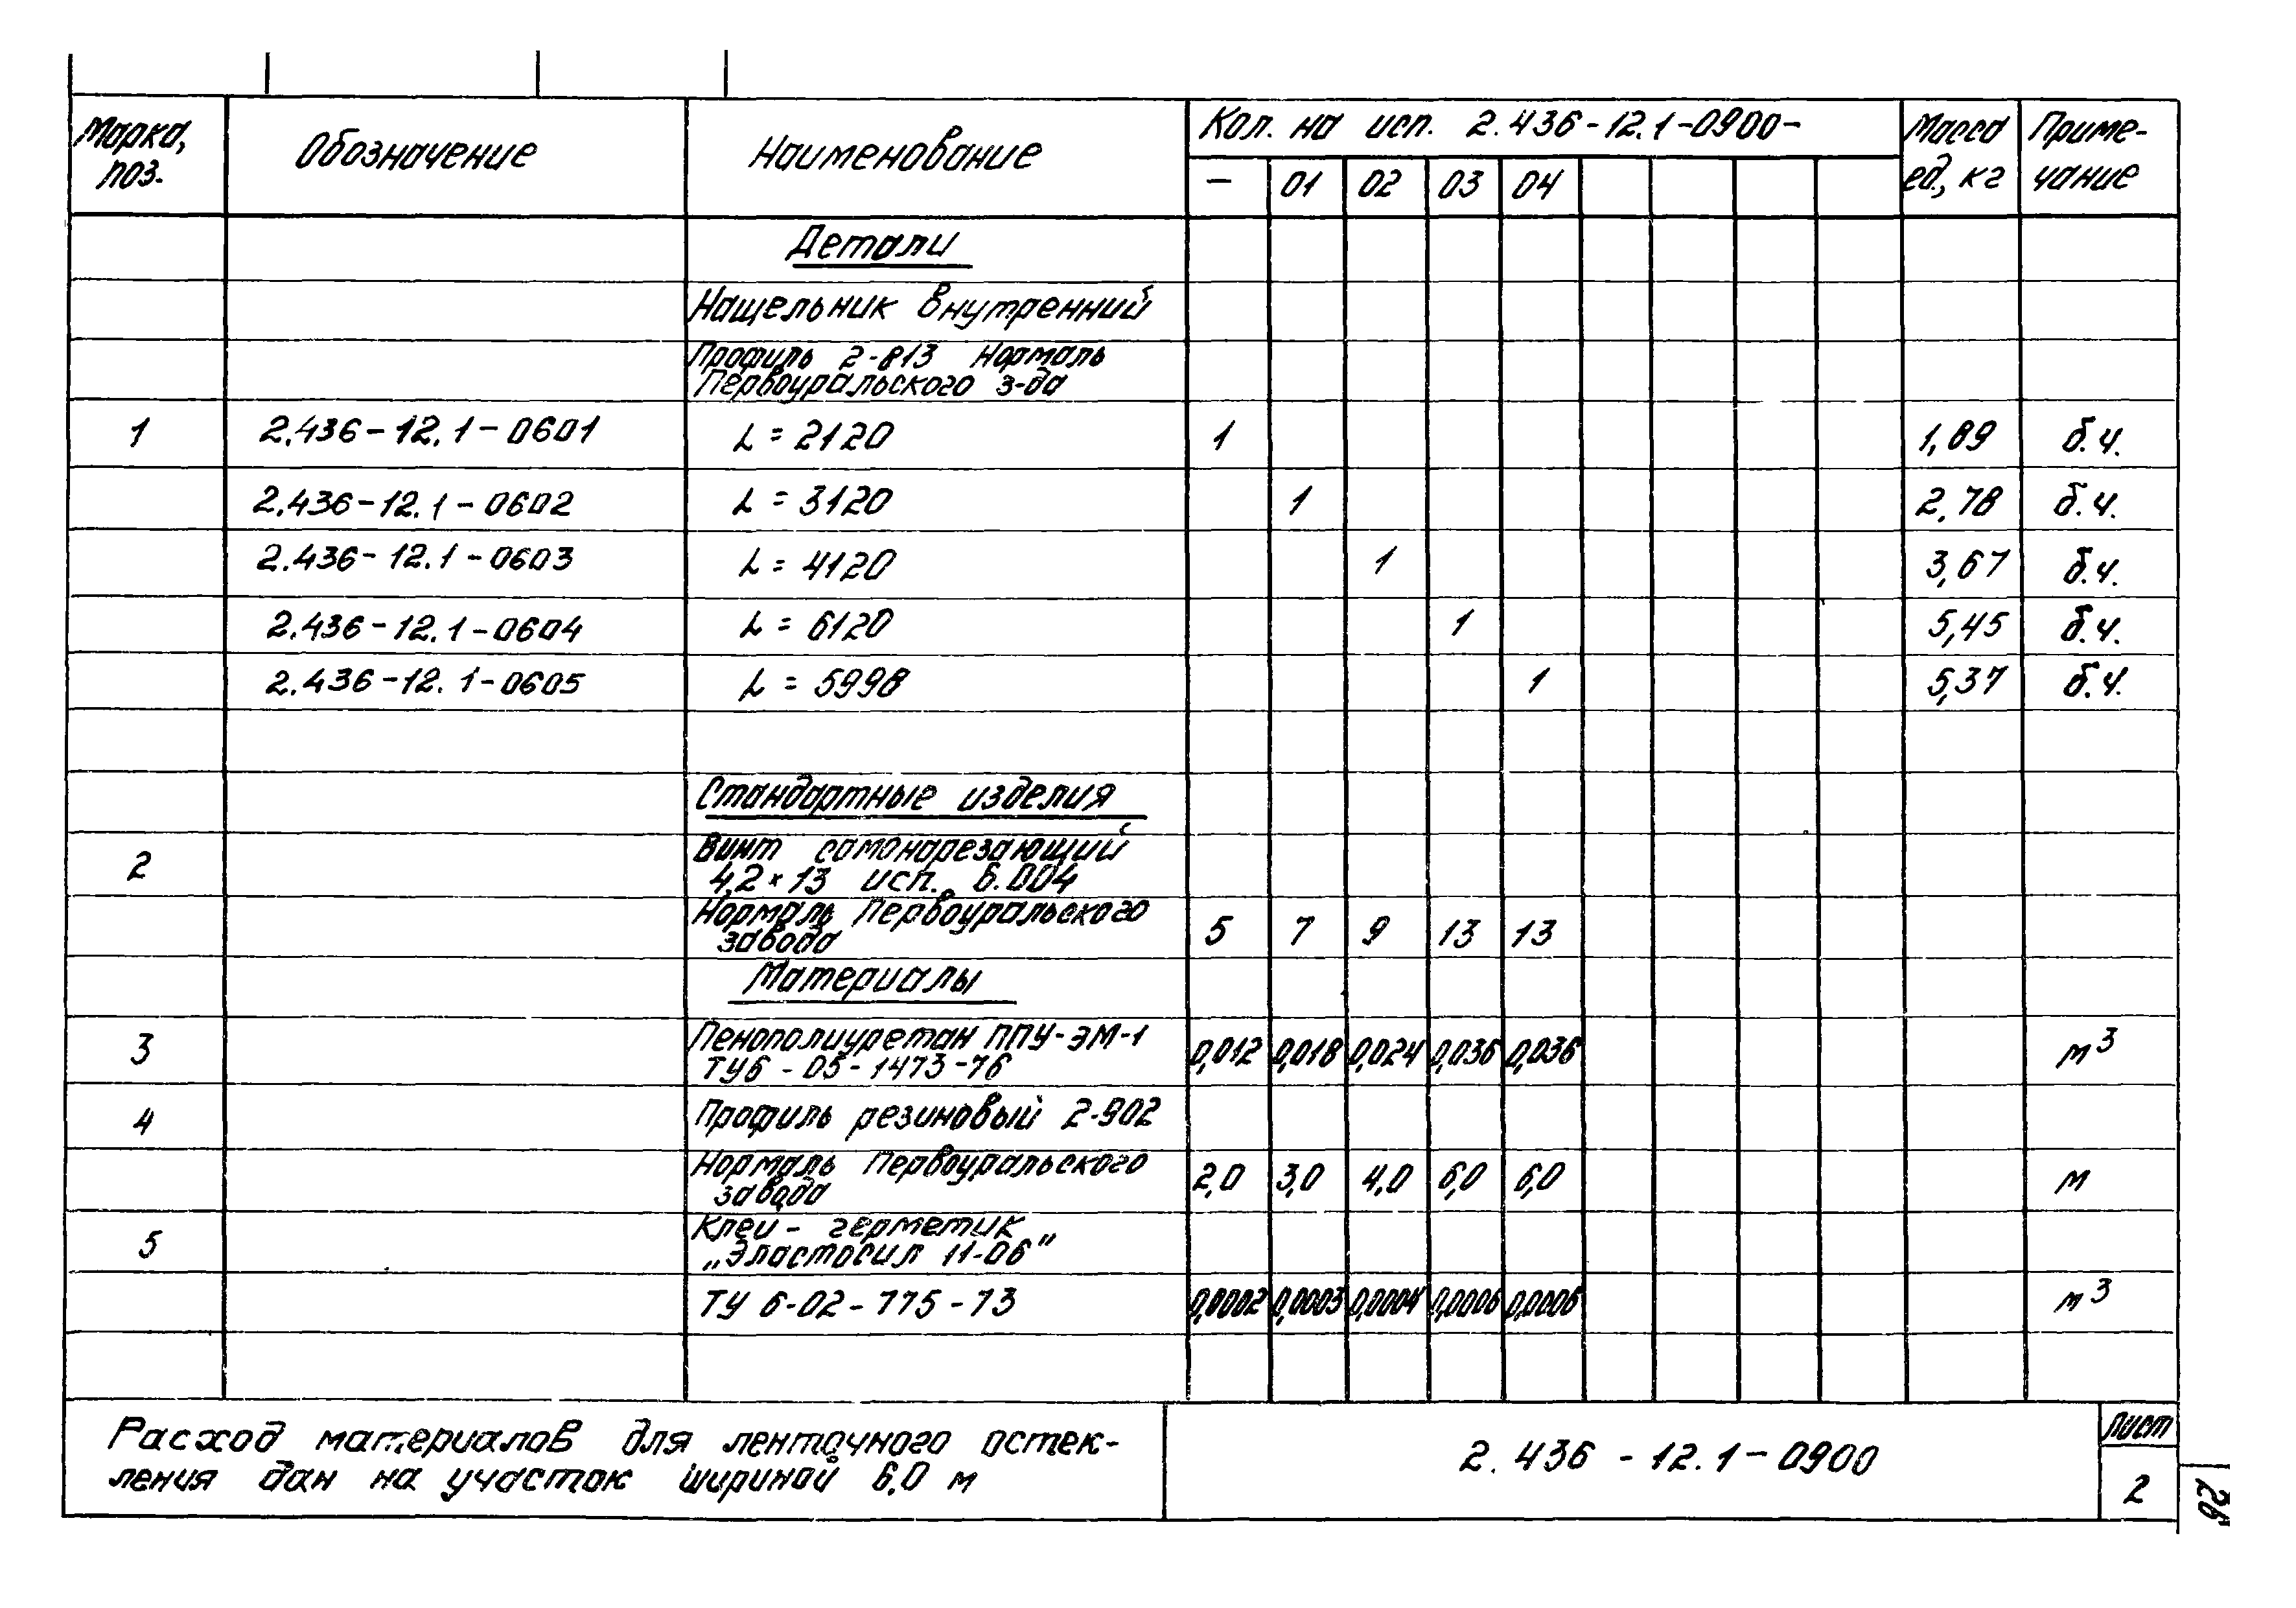 Марка, поз. Обозначение Наименование Кол. на исп. 2.436-12.1-0900- Масса ед, кг Приме-чание
– 01 02 03 04
Детали
Нащельник внутренний
Профиль 2-813 Нормаль
Первоуральского з-да
1 2.436-12.1-0601 L = 2120 1 1,89 б.ч.
2.436-12.1-0602 L = 3120 1 2,78 б.ч.
2.436-12.1-0603 L = 4120 1 3,67 б.ч.
2.436-12.1-0604 L = 6120 1 5,45 б.ч.
2.436-12.1-0605 L = 5998 1 5,37 б.ч.
Стандартные изделия
2 Винт самонарезающий
4,2×13 исп. 6.004
Нормаль Первоуральского
завода 5 7 9 13 13
Материалы
3 Пенополиуретан ППУ-ЭМ-1
ТУ6-05-1473-76 0,012 0,018 0,024 0,036 0,036 м3
4 Профиль резиновый 2-902
Нормаль Первоуральского
завода 2,0 3,0 4,0 6,0 6,0 м
5 Клей - герметик
„Эластосил 11-06"
ТУ 6-02-775-73 0,0002 0,0003 0,0004 0,0006 0,0006 м3
Расход материалов для ленточного остек-
ления дан на участок шириной 6,0 м
2.436-12.1-0900
Лист
2
26